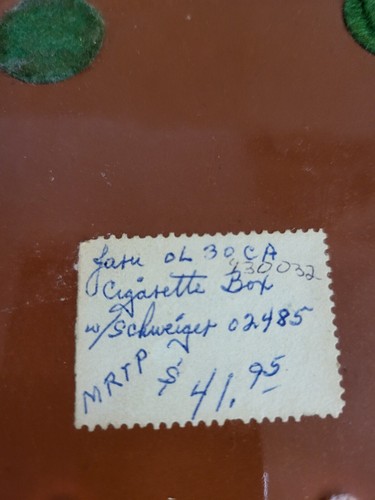 Jaru OL 30 CA
430032
Cigarette Box
w/Schweiger 02485
MRTP $ 41.95